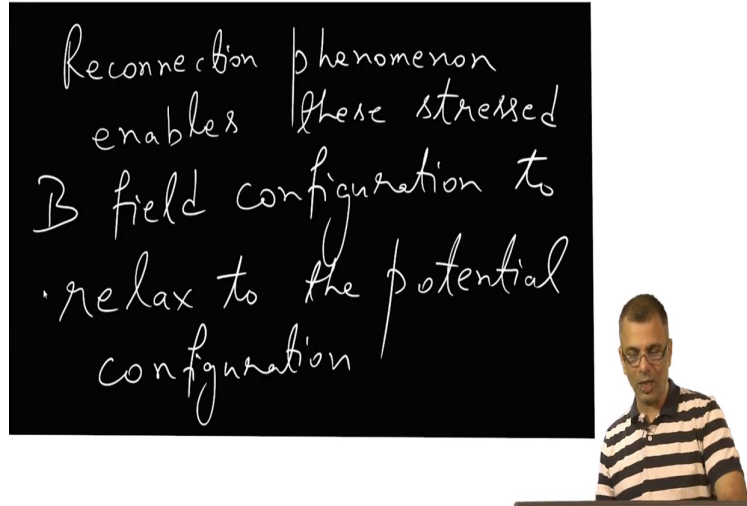 Reconnection phenomenon
enables these stressed
B field configuration to
relax to the potential
configuration